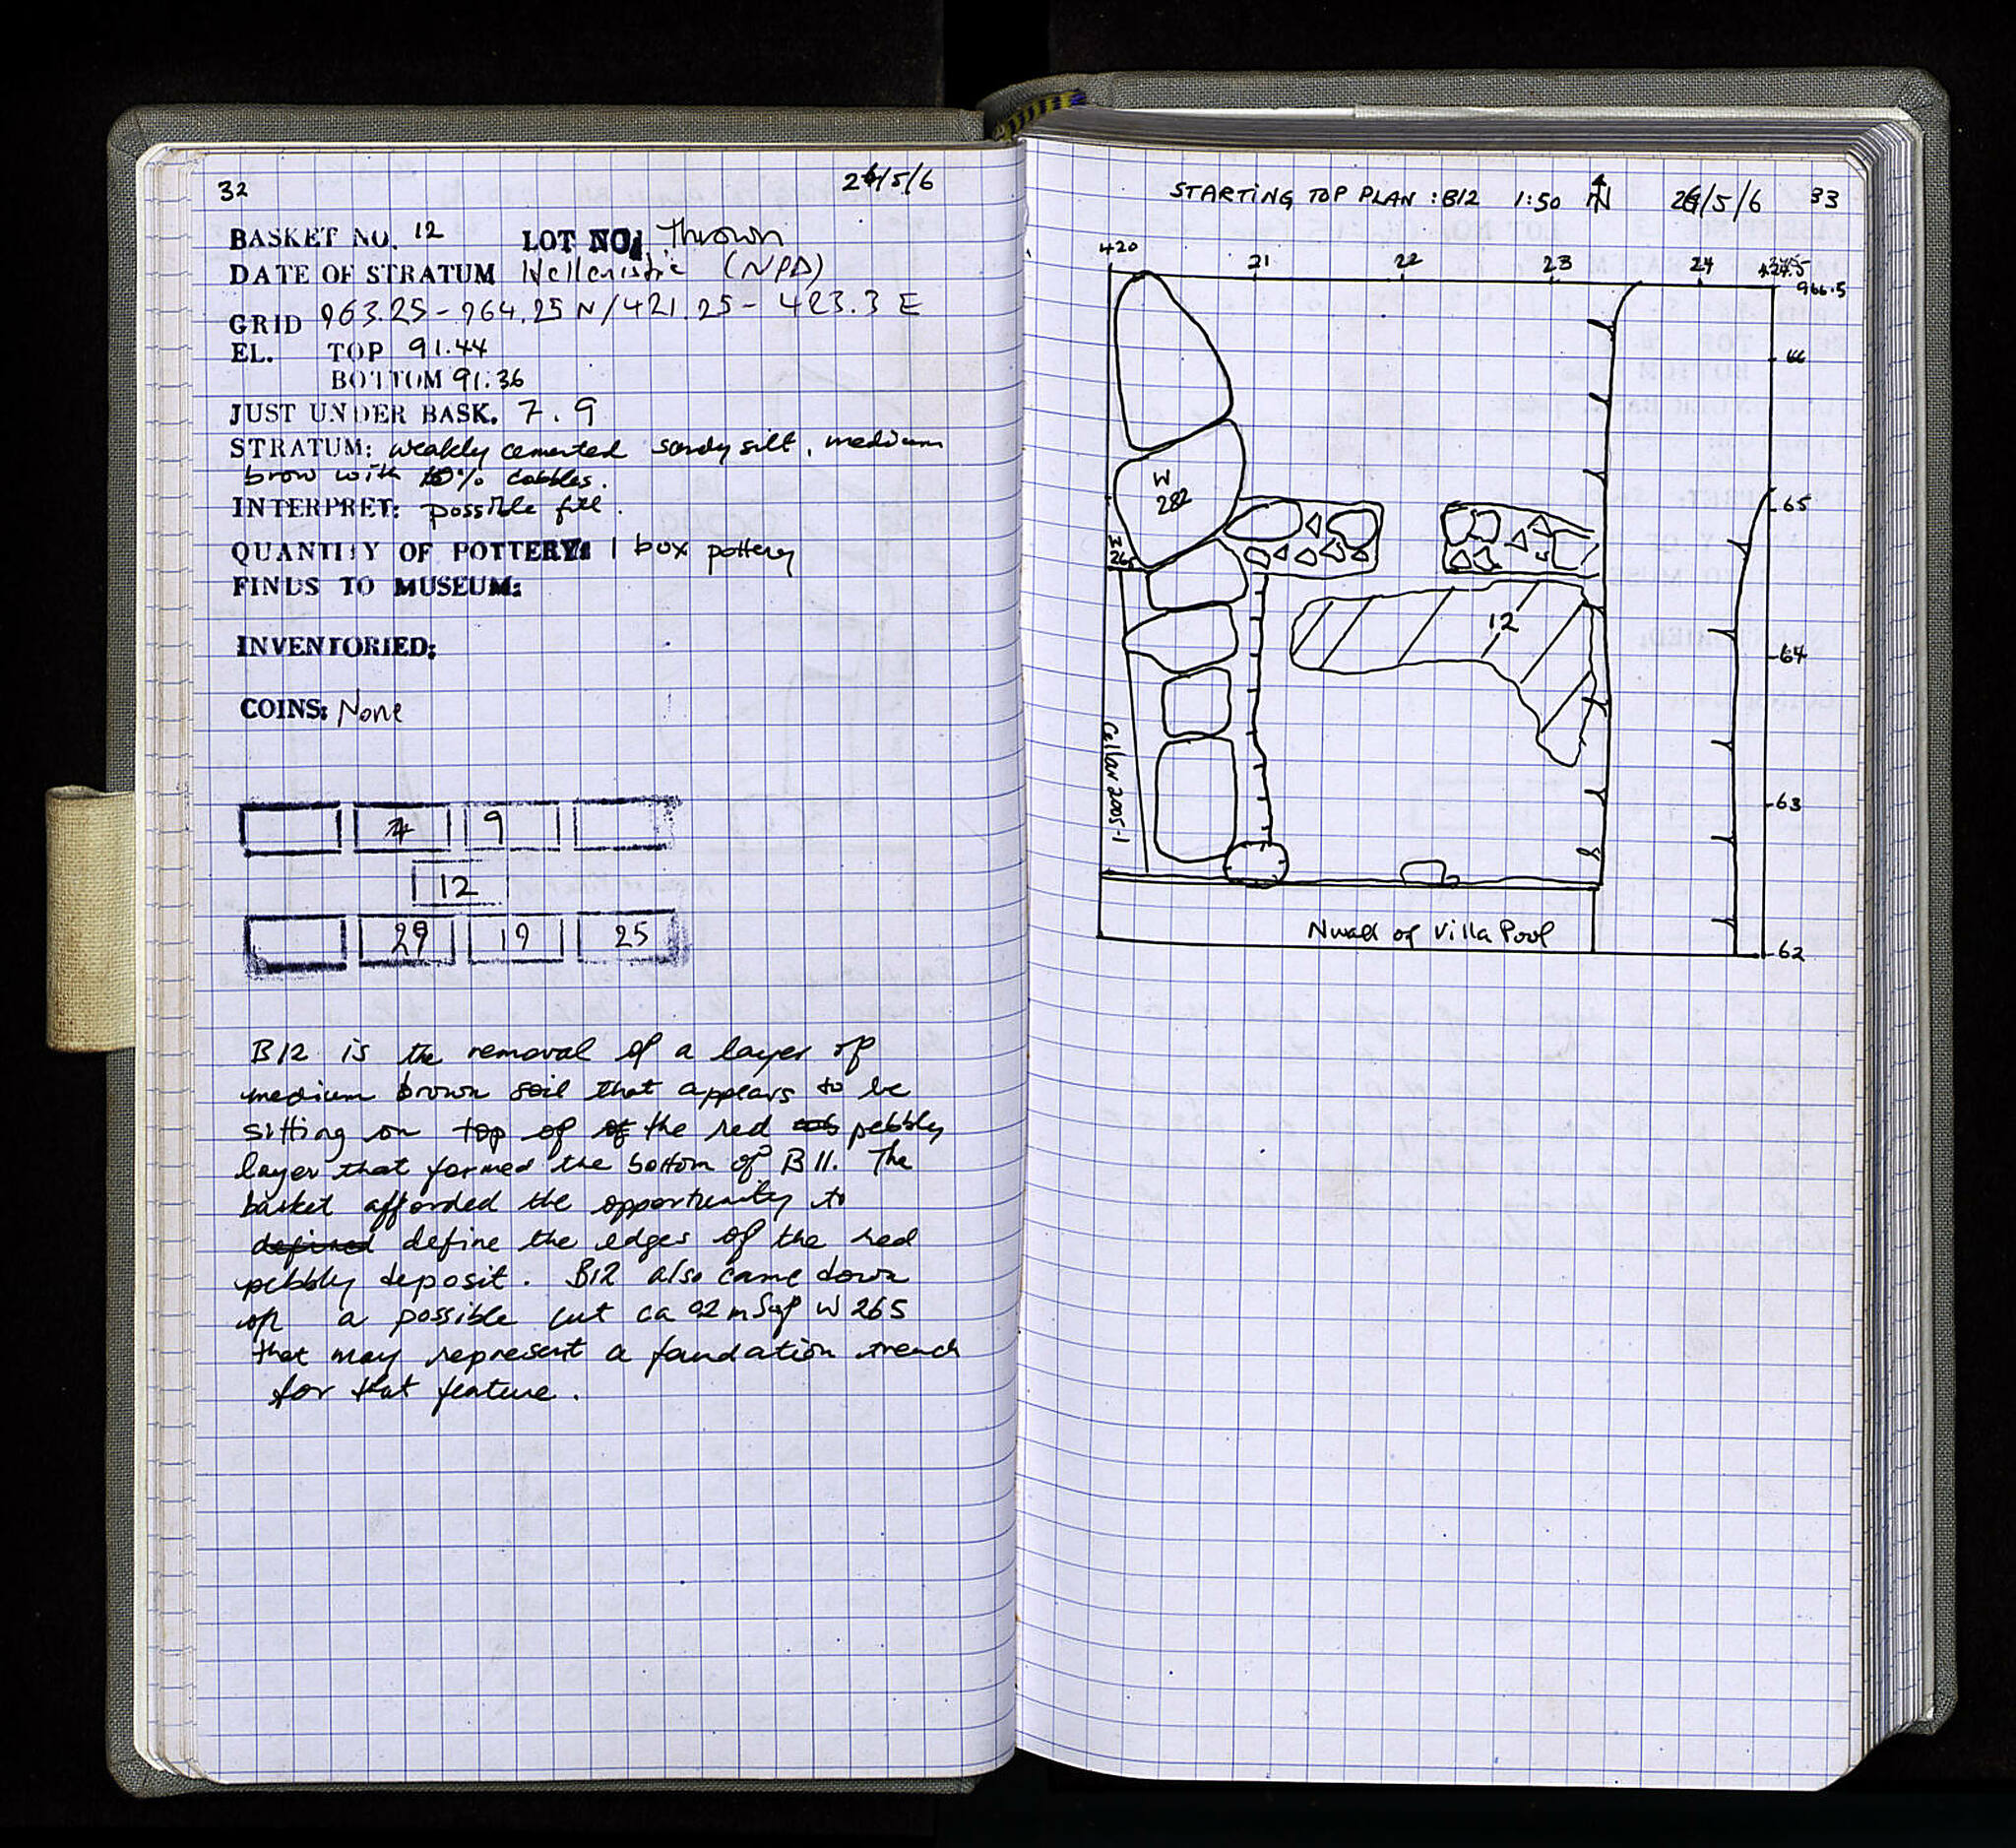 32
24/5/6
BASKET NO. 12 LOT NO. Thrown
DATE OF STRATUM Hellenistic (NPD)
GRID 963.25 - 964.25 N / 421.25 - 423.3 E
EL. TOP 91.44
BOTTOM 91.36
JUST UNDER BASK. 7. 9
STRATUM: weakly cemented sandy silt, medium
brow with 10% cobbles.
INTERPRET: possible fill.
QUANTITY OF POTTERY: 1 box pottery
FINDS TO MUSEUM:
INVENTORIED:
COINS: None
7 9
12
29 19 25
B12 is the removal of a layer of
medium brown soil that appears to be
sitting on top of of the red pebbly
layer that formed the bottom of B11. The
basket afforded the opportunity to
defined define the edges of the red
pebbly deposit. B12 also came down
on a possible cut ca 02 m S of W 265
that may represent a foundation trench
for that feature.
STARTING TOP PLAN : B12 1:50 N 24/5/6 33
420 21 22 23 24 424.5
966.5
66
65
64
63
62
W
282
W
265
12
Cellar 2005-1
Nwall of Villa Pool